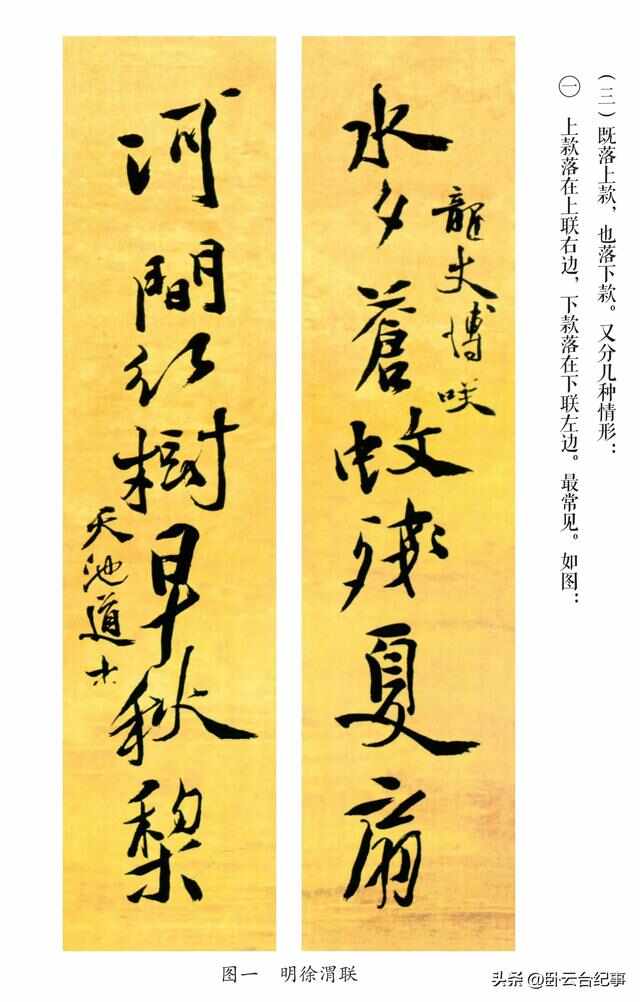 （三）既落上款，也落下款。又分几种情形：
㊀ 上款落在上联右边，下款落在下联左边。最常见。如图：
龍史博咲
水夕蒼蚊殘夏扇
河間紅樹早秋梨
天池道士
图一 明徐渭联
头条 @卧云台纪事